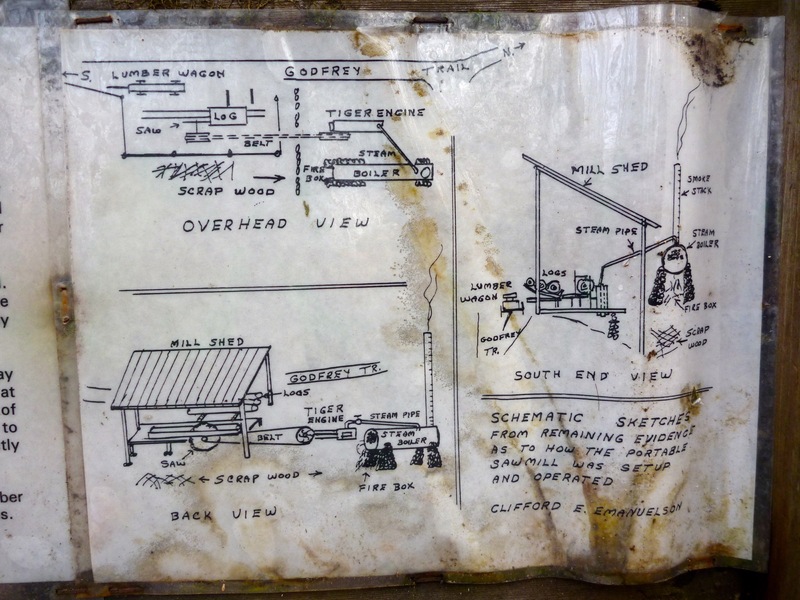 ay
at
of
to
stly
ber
s.
← S.
LUMBER WAGON
GODFREY TRAIL
N. →
LOG
SAW
TIGER ENGINE
BELT
STEAM
BOILER
FIRE
BOX
SCRAP WOOD
OVERHEAD VIEW
MILL SHED
SMOKE
STACK
STEAM PIPE
STEAM
BOILER
LOGS
LUMBER
WAGON
GODFREY
TR.
FIRE BOX
SCRAP
WOOD
SOUTH END VIEW
MILL SHED
GODFREY TR.
LOGS
TIGER
ENGINE
STEAM PIPE
BELT
STEAM
BOILER
SAW
← SCRAP WOOD →
FIRE BOX
BACK VIEW
SCHEMATIC SKETCHES
FROM REMAINING EVIDENCE
AS TO HOW THE PORTABLE
SAWMILL WAS SETUP
AND OPERATED
CLIFFORD E. EMANUELSON